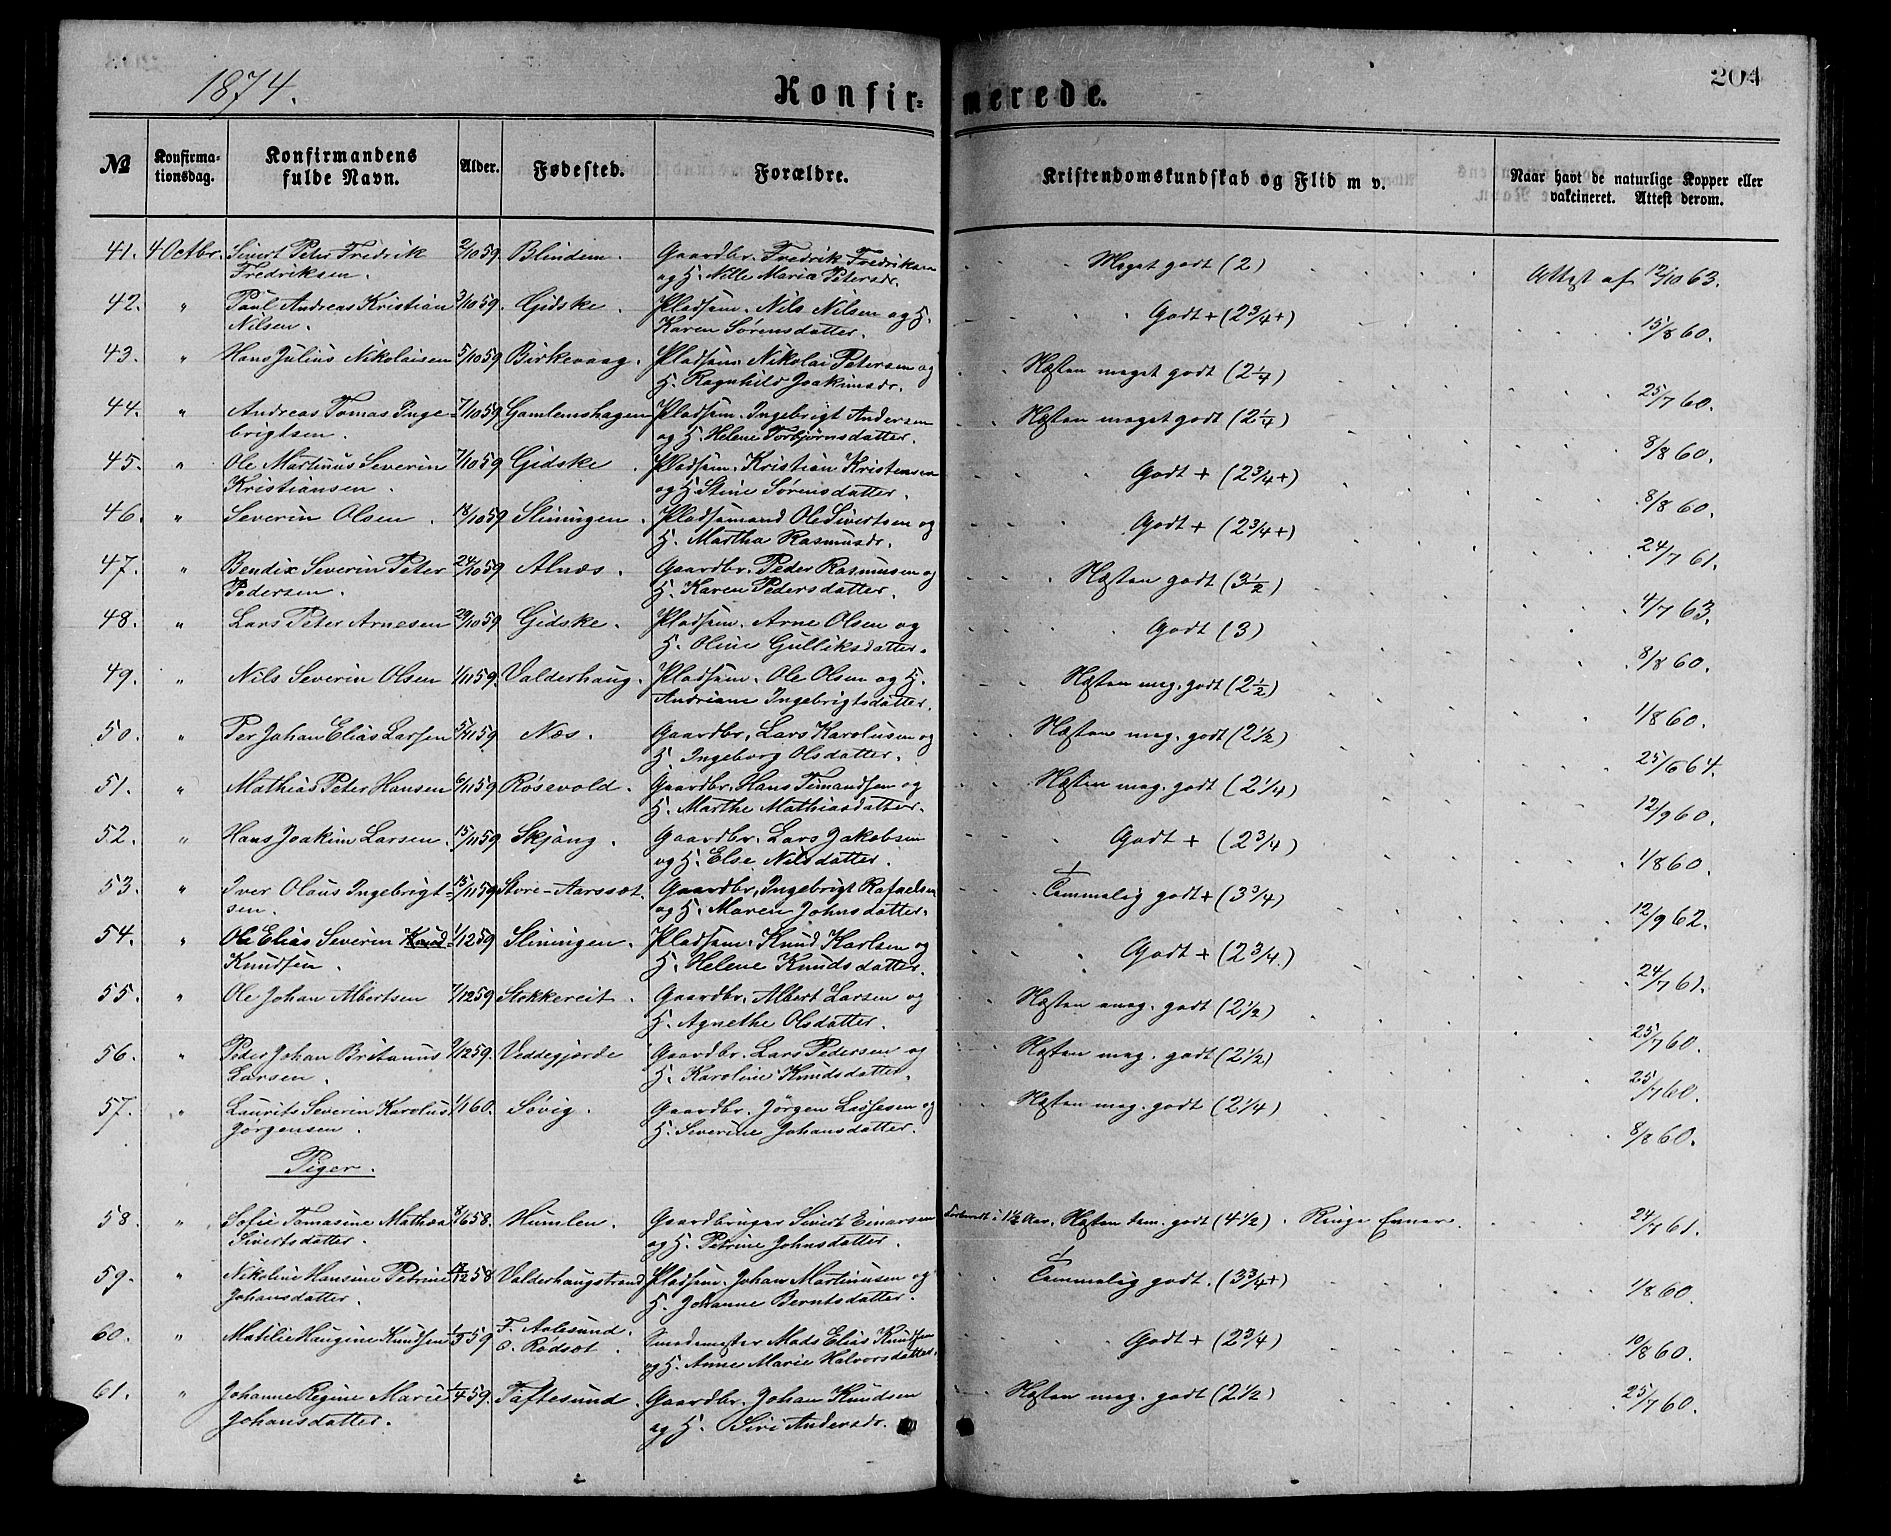 1874.
Konfir= merede.
204
№
Konfirma-
tionsdag.
Konfirmandens
fulde Navn.
Alder.
Fødested.
Forældre.
Kristendomskundskab og Flid m v.
Naar havt de naturlige Kopper eller
vakcineret. Attest derom.
41. 4 Octbr. Sivert Peter Fredrik 2/10 59. Blindem. Gaardbr. Fredrik Fredriksen Meget godt (2) Attest af 12/10 63.
Fredriksen. og H. Nille Maria Petersdr.
42. " Paul Andreas Kristian 3/10 59. Gidske. Pladsem. Nils Nilsen og H. Godt + (2 3/4 +) 15/8 60.
Nilsen. Karen Sørensdatter.
43. " Hans Julius Nikolaisen 5/10 59 Birkevaag. Pladsem. Nikolai Petersen og Næsten meget godt (2 1/4) 25/7 60.
H. Ragnhild Joakimsdr.
44. " Andreas Tomas Inge- 7/10 59 Gamlemshagen Pladsem. Ingebrigt Andersen Næsten meget godt (2 1/4) 8/8 60.
brigtsen. og H. Helene Torbjørnsdatter.
45. " Ole Martinus Severin 7/10 59 Gidske. Pladsem. Kristian Kristensen Godt + (2 3/4 +) 8/8 60.
Kristiansen. og H. Stine Sørensdatter.
46. " Severin Olsen. 18/10 59 Sliningen. Pladsemand Ole Sivertsen og Godt + (2 3/4 +) 24/7 61.
H. Martha Rasmusdr.
47. " Bendix Severin Peter 24/10 59 Alnæs. Gaardbr. Peder Rasmusen og Næsten godt (3 1/2) 4/7 63.
Pedersen. H. Karen Pedersdatter.
48. " Lars Peter Arnesen 29/10 59 Gidske. Pladsem. Arne Olsen og Godt (3) 8/8 60.
H. Oline Gulliksdatter.
49. " Nils Severin Olsen 1/11 59. Valderhaug. Pladsem. Ole Olsen og H. Næsten meg. godt (2 1/2) 1/8 60.
Andriane Ingebrigtsdatter.
50. " Per Johan Elias Larsen 5/11 59 Næs. Gaardbr. Lars Karolusen og Næsten meg. godt (2 1/2) 25/6 64.
H. Ingeborg Olsdatter.
51. " Mathias Peter Hansen 6/11 59 Røsevold. Gaardbr. Hans Timandsen og Næsten meg. godt (2 1/4) 12/9 60.
H. Marthe Mathiasdatter.
52. " Hans Joakim Larsen. 15/11 59 Skjong. Gaardbr. Lars Jakobsen Godt + (2 3/4) 1/8 60.
og H. Else Nilsdatter.
53. " Iver Olaus Ingebrigt- 15/11 59 Store-Aarssæt. Gaardbr. Ingebrigt Rafaelsen Temmelig godt + (3 3/4) 12/9 62.
sen. og H. Maren Johnsdatter.
54. " Ole Elias Severin Knud- 1/12 59 Sliningen. Pladsem. Knud Karlsen og Godt + (2 3/4.) 24/7 61.
Knudsen. H. Helene Knudsdatter.
55. " Ole Johan Albertsen 7/12 59 Stokkereit. Gaardbr. Albert Larsen og Næsten meg. godt (2 1/2) 25/7 60.
H. Agnethe Olsdatter.
56. " Peder Johan Britanus 9/12 59. Veddegjerde Gaardbr. Lars Pedersen og Næsten meg. godt (2 1/2) 25/7 60.
Larsen. H. Karoline Knudsdatter.
57. " Laurits Severin Karolus 1/1 60. Søvig. Gaardbr. Jørgen Lassesen og Næsten meg. godt (2 1/4) 8/8 60.
Jørgensen. H. Severine Johansdatter.
Piger.
58. " Sofie Tomasine Mathea 8/6 58. Humlen. Gaardbruger Sivert Einarsen Forberedt i 1 1/2 Aar. Næsten tem. godt (4 1/2). Ringe Evner. 24/7 61.
Sivertsdatter. og H. Petrine Johnsdatter.
59. " Nikoline Hansine Petrine 17/12 58. Valderhaugstrand Pladsem. Johan Martinusen og Temmelig godt. (3 3/4 +) 1/8 60.
Johansdatter. H. Johanne Berntsdatter.
60. " Matilie Haugine Knudsen 1/3 59 F. Aalesund. Smedemester Mads Elias Knudsen Godt + (2 3/4) 10/8 60.
O. Rødsæt. og H. Anne Marie Halvorsdatter.
61. " Johanne Regine Marie 1/4 59. Tøftesund. Gaardbr. Johan Knudsen Næsten meg. godt (2 1/2) 25/7 60.
Johansdatter. og H. Siri Andersdr.